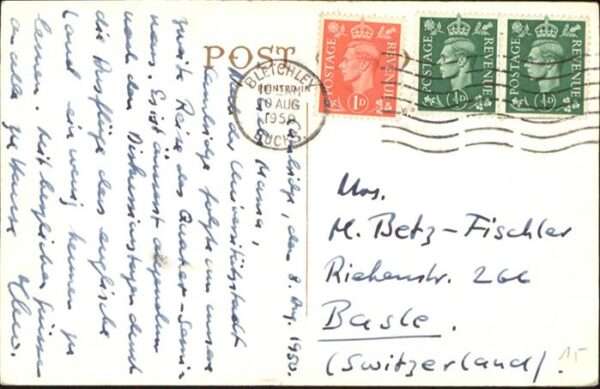 POST CARD
BLETCHLEY
AUG
1950
BUCKS
POSTAGE REVENUE
1D
POSTAGE REVENUE
½D
POSTAGE REVENUE
½D
Cambridge, den 8. Aug. 1950.
Mama,
Nach der Universitätsstadt
Cambridge folgte nun unsere
zweite Reise des Quäker-Semi-
nars. Es ist äusserst
nach den Diskussionstagen durch
die Ausflüge das englische
Land ein wenig kennen zu
lernen. Mit herzlichen Grüssen
an alle zu Hause
Mrs.
M. Betz-Fischler
Riehenstr. 266
Basle.
(Switzerland).
15